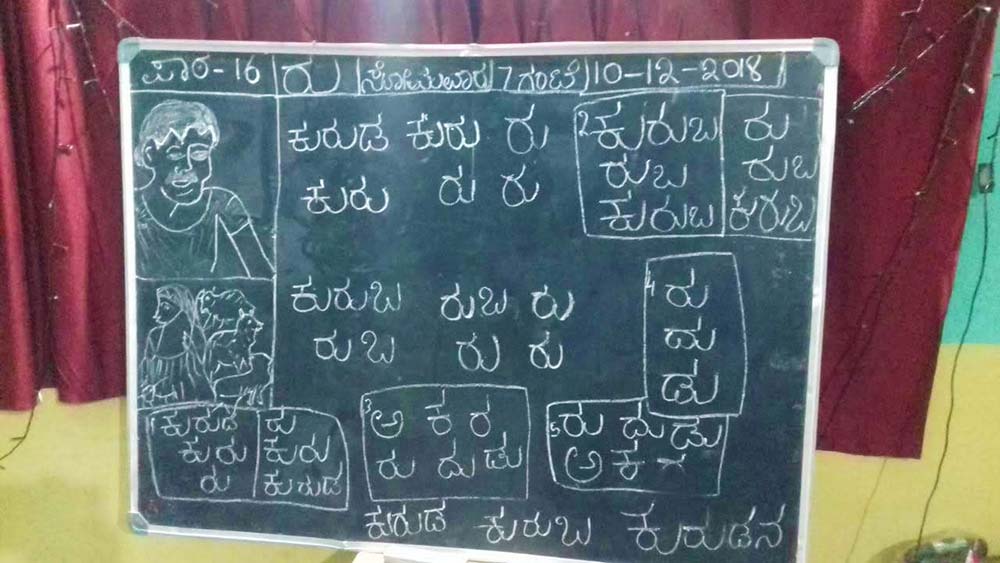 ಪಾಠ-16 ರು ಸೋಮವಾರ 7 ಗಂಟೆ 10-12-2018
ಕುರುಡ ಕುರು ರು
ಕುರು ರು ರು
2 ಕುರುಬ
ರುಬ
ಕುರುಬ
ರು
ರುಬ
ಕುರುಬ
ಕುರುಬ ರುಬ ರು
ರುಬ ರು ರು
4 ರು
ದು
ಡು
1 ಕುರುಡ
ಕುರು
ರು
ಕು
ಕುರು
ಕುರುಡ
3 ಅ ಕ ರ
ರು ದು ಡು
5 ರು ದು ಡು
ಅ ಕ
ಕುರುಡ ಕುರುಬ ಕುರುಡನ